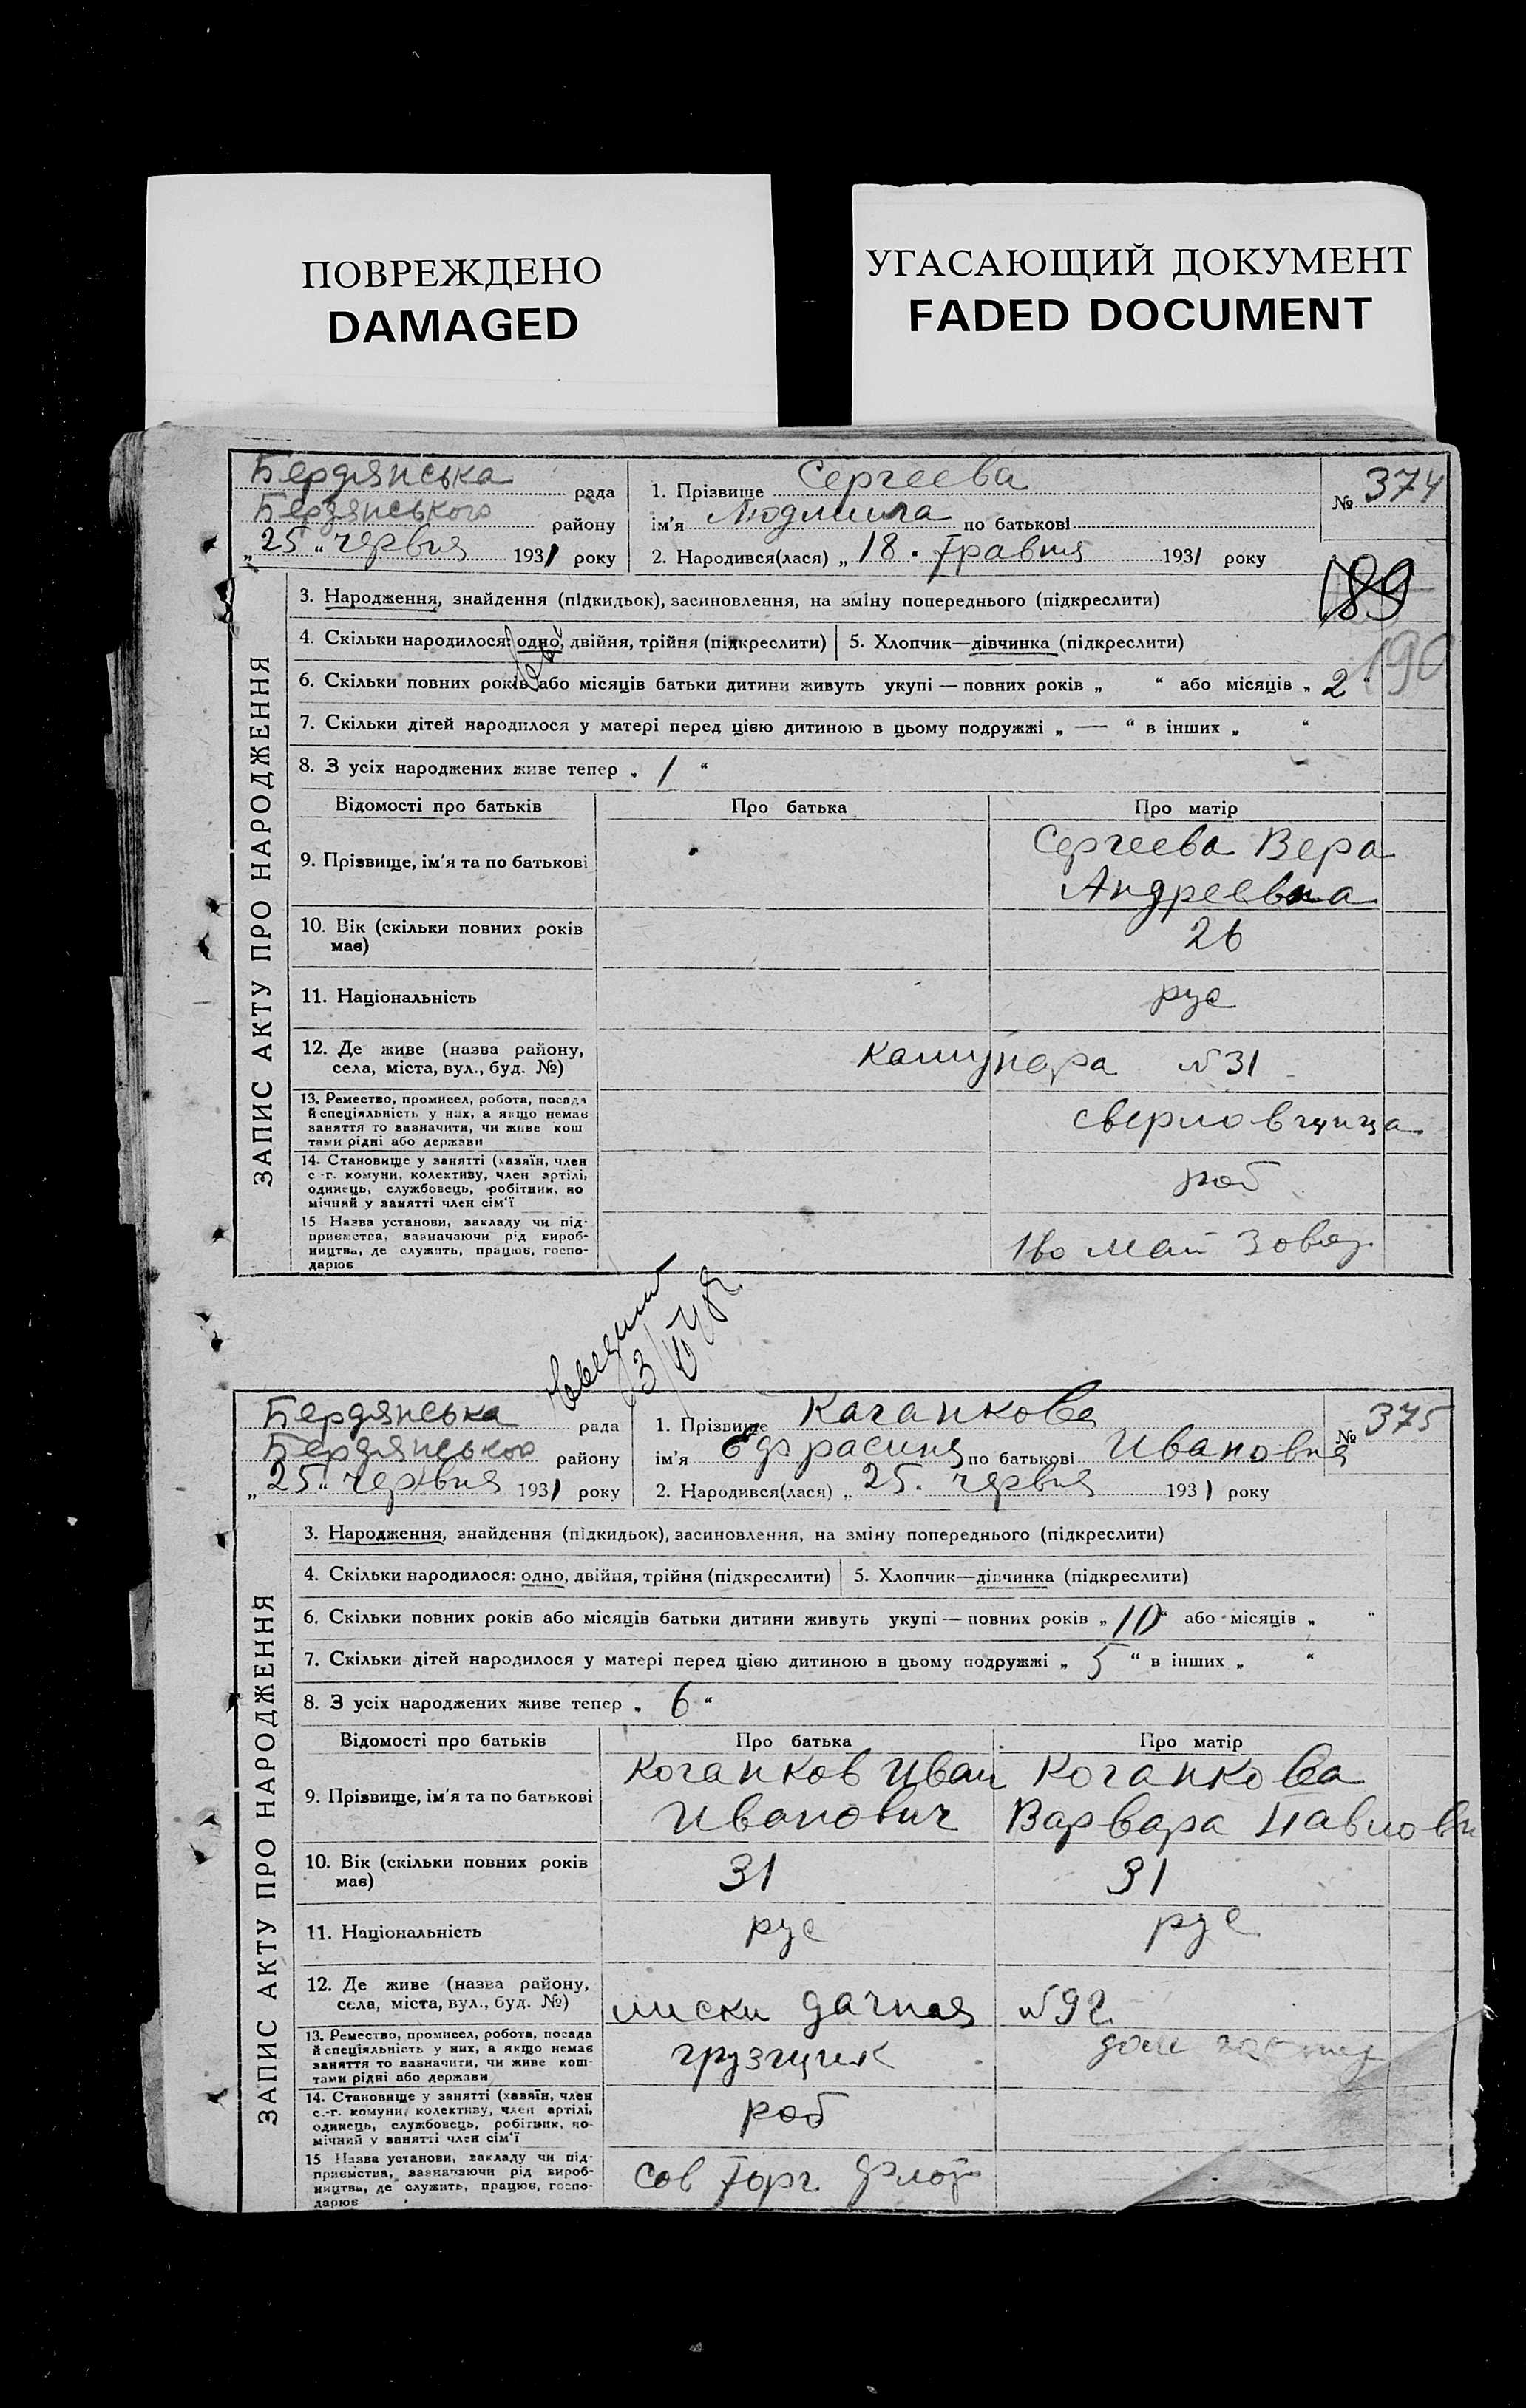 ПОВРЕЖДЕНО
DAMAGED
УГАСАЮЩИЙ ДОКУМЕНТ
FADED DOCUMENT
Бердянська рада
Бердянського району
„25“ червня 1931 року
1. Прізвище Сергеева
ім'я Людмила по батькові
2. Народився(лася) „18. травня 1931 року
№ 374
189
190
ЗАПИС АКТУ ПРО НАРОДЖЕННЯ
3. Народження, знайдення (підкидьок), засиновлення, на зміну попереднього (підкреслити)
4. Скільки народилося: одно, двійня, трійня (підкреслити) 5. Хлопчик—дівчинка (підкреслити)
6. Скільки повних років або місяців батьки дитини живуть укупі — повних років „ “ або місяців „ 2 “
7. Скільки дітей народилося у матері перед цією дитиною в цьому подружжі „ — “ в інших „ “
8. З усіх народжених живе тепер „ 1 “
Відомості про батьків Про батька Про матір
9. Прізвище, ім'я та по батькові Сергеева Вера
Андреевна
10. Вік (скільки повних років має) 26
11. Національність рус
12. Де живе (назва району, села, міста, вул., буд. №) №31
13. Ремество, промисел, робота, посада
й спеціяльність у них, а якщо немає
заняття то зазначити, чи живе кош
тами рідні або держави
сверловщица
14. Становище у занятті (хазяїн, член
с.-г. комуни, колективу, член артілі,
одинець, службовець, робітник, по
мічний у занятті член сім'ї
роб
15 Назва установи, закладу чи під-
приємства, зазначаючи рід вироб-
ництва, де служить, працює, госпо-
дарює
1во май завод
Бердянська рада
Бердянського району
„25“ червня 1931 року
1. Прізвище Качанкова
ім'я Ефрасиня по батькові Ивановна
2. Народився(лася) „25. червня 1931 року
№ 375
ЗАПИС АКТУ ПРО НАРОДЖЕННЯ
3. Народження, знайдення (підкидьок), засиновлення, на зміну попереднього (підкреслити)
4. Скільки народилося: одно, двійня, трійня (підкреслити) 5. Хлопчик—дівчинка (підкреслити)
6. Скільки повних років або місяців батьки дитини живуть укупі — повних років „ 10 “ або місяців „ “
7. Скільки дітей народилося у матері перед цією дитиною в цьому подружжі „ 5 “ в інших „ “
8. З усіх народжених живе тепер „ 6 “
Відомості про батьків Про батька Про матір
Качанков Иван Качанкова
9. Прізвище, ім'я та по батькові
Иванович Варвара Павловн
10. Вік (скільки повних років має) 31 31
11. Національність рус рус
12. Де живе (назва району,
села, міста, вул., буд. №) лиски дачная №92
13. Ремество, промисел, робота, посада
й спеціяльність у них, а якщо немає
заняття то зазначити, чи живе кош-
тами рідні або держави
грузчик дом
14. Становище у занятті (хазяїн, член
с.-г. комуни, колективу, член артілі,
одинець, службовець, робітник, по-
мічний у занятті член сім'ї
роб
15 Назва установи, закладу чи під-
приємства, зазначаючи рід вироб-
ництва, де служить, працює, госпо-
дарює
Сов торг. флот